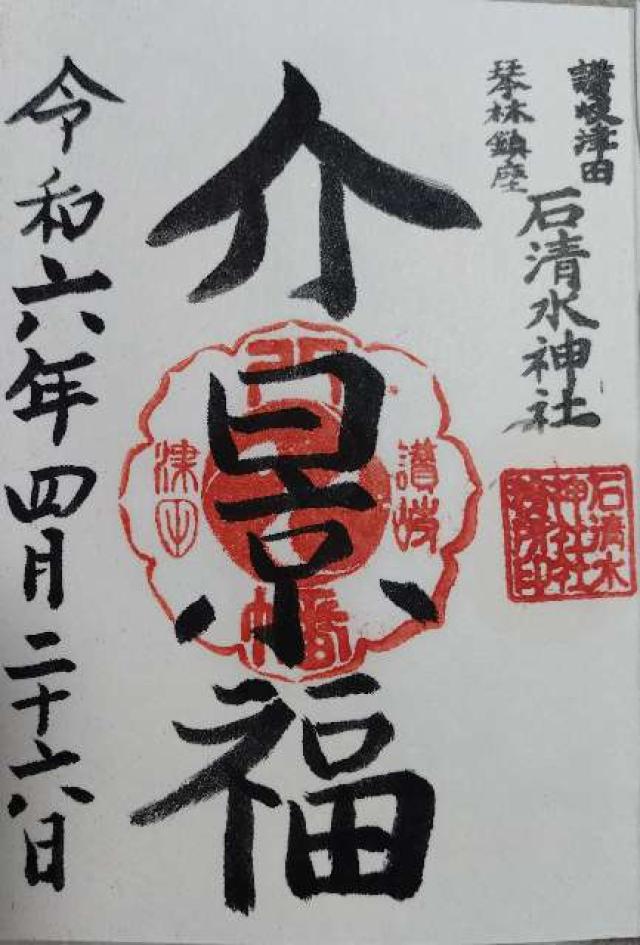 讃岐津田
琴林鎮座
石清水神社
介景福
令和六年四月二十六日
讃岐
津田
八幡
石清水
神社社
務所印